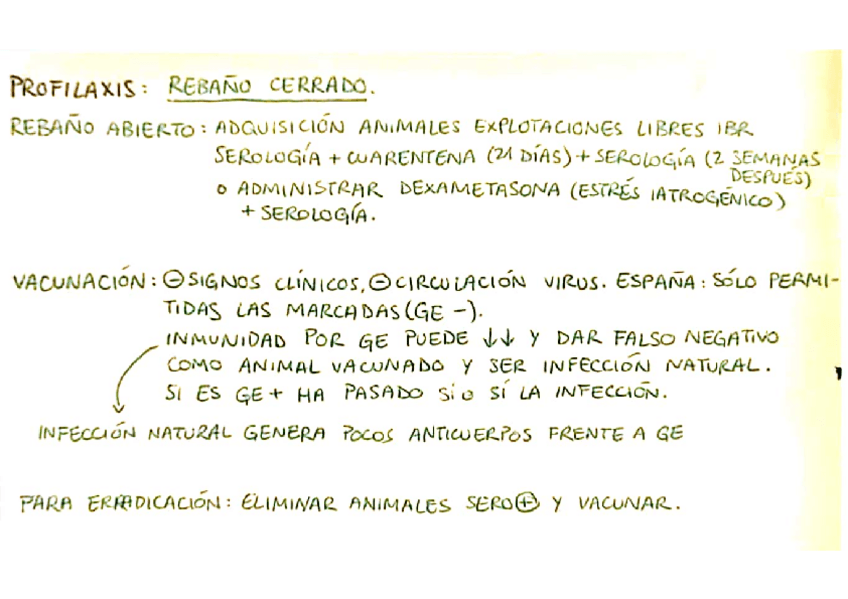 PROFILAXIS: REBAÑO CERRADO.
REBAÑO ABIERTO: ADQUISICIÓN ANIMALES EXPLOTACIONES LIBRES IBR
SEROLOGÍA + CUARENTENA (21 DÍAS) + SEROLOGÍA (2 SEMANAS
DESPUÉS)
O ADMINISTRAR DEXAMETASONA (ESTRÉS IATROGÉNICO)
+ SEROLOGÍA.
VACUNACIÓN: ⊖ SIGNOS CLÍNICOS, ⊖ CIRCULACIÓN VIRUS. ESPAÑA: SÓLO PERMI-
TIDAS LAS MARCADAS (GE -).
INMUNIDAD POR GE PUEDE ↓↓ Y DAR FALSO NEGATIVO
COMO ANIMAL VACUNADO Y SER INFECCIÓN NATURAL.
SI ES GE+ HA PASADO SÍ O SÍ LA INFECCIÓN.
INFECCIÓN NATURAL GENERA POCOS ANTICUERPOS FRENTE A GE
PARA ERRADICACIÓN: ELIMINAR ANIMALES SERO⊕ Y VACUNAR.